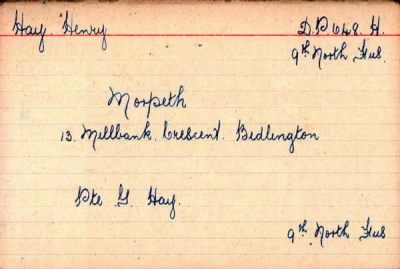 Hay Henry D.P. 648. H.
9th North Fus.
Morpeth
13. Millbank Crescent. Bedlington
Pte G. Hay.
9th. North Fus